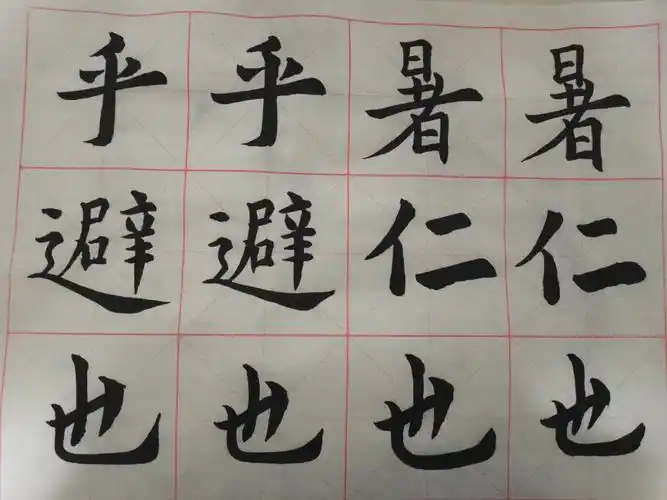 乎乎暑暑
避避仁仁
也也也也